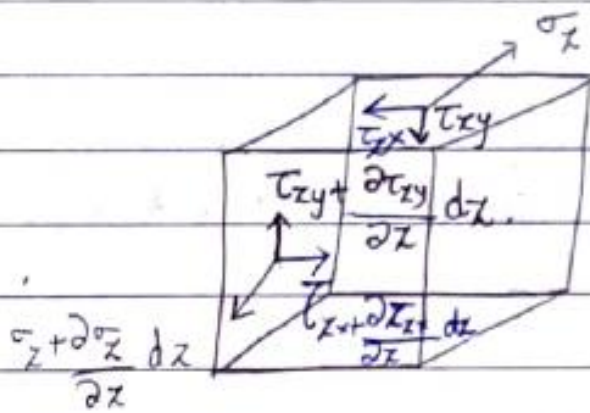 σz
τzx τzy
τzy + ∂τzy/∂z dz.
τzx + ∂τzx/∂z dz
σz + ∂σz/∂z dz